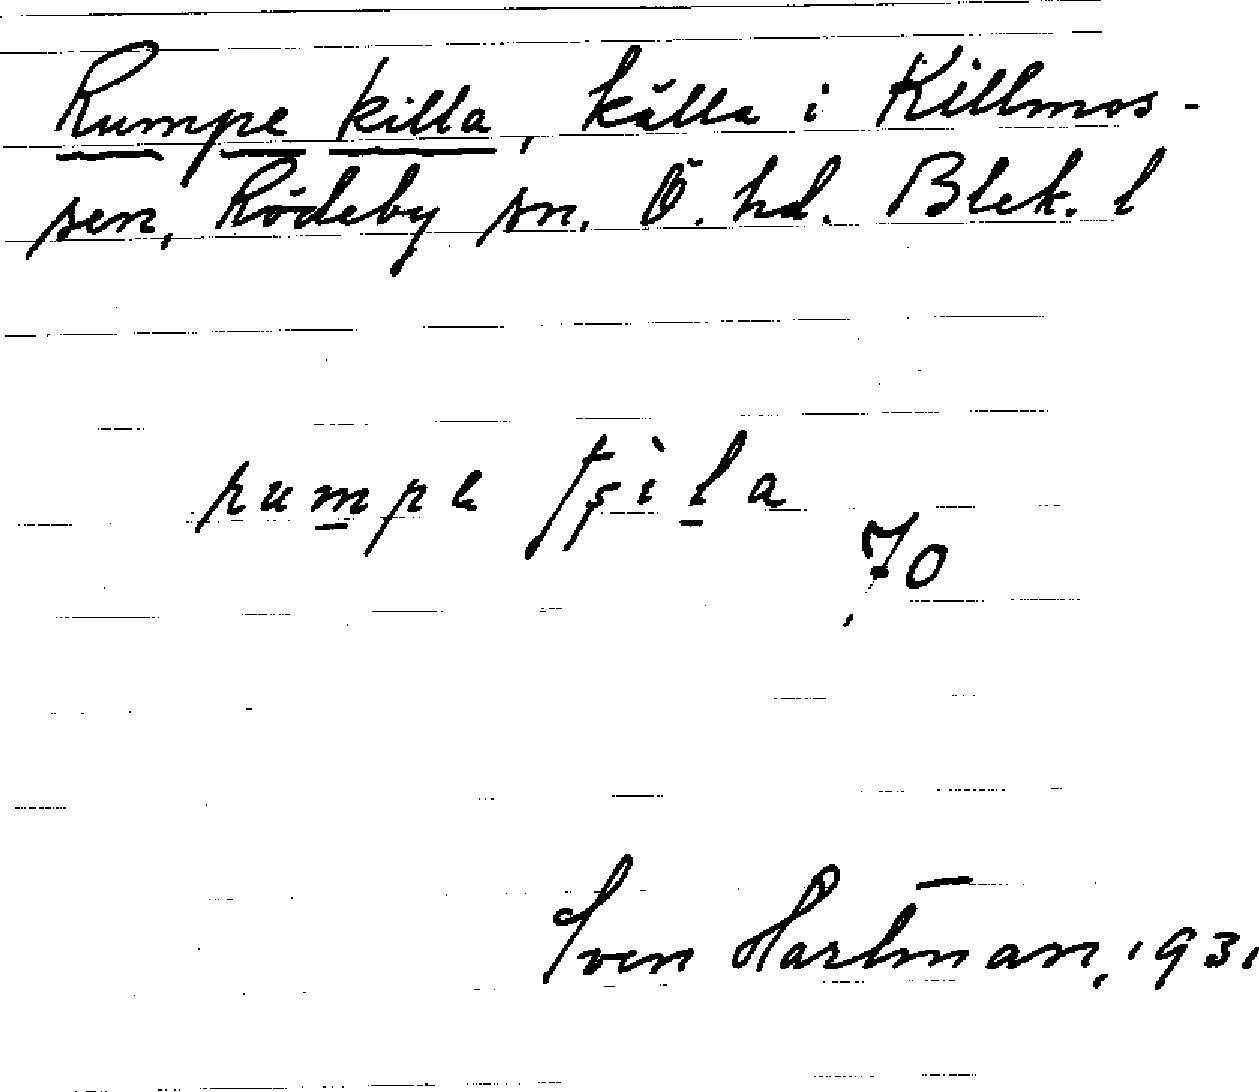 Rumpe killa, källa i Killmos-
sen, Rödeby sn. Ö. hd. Blek. l
70
Sven Hartman, 1931